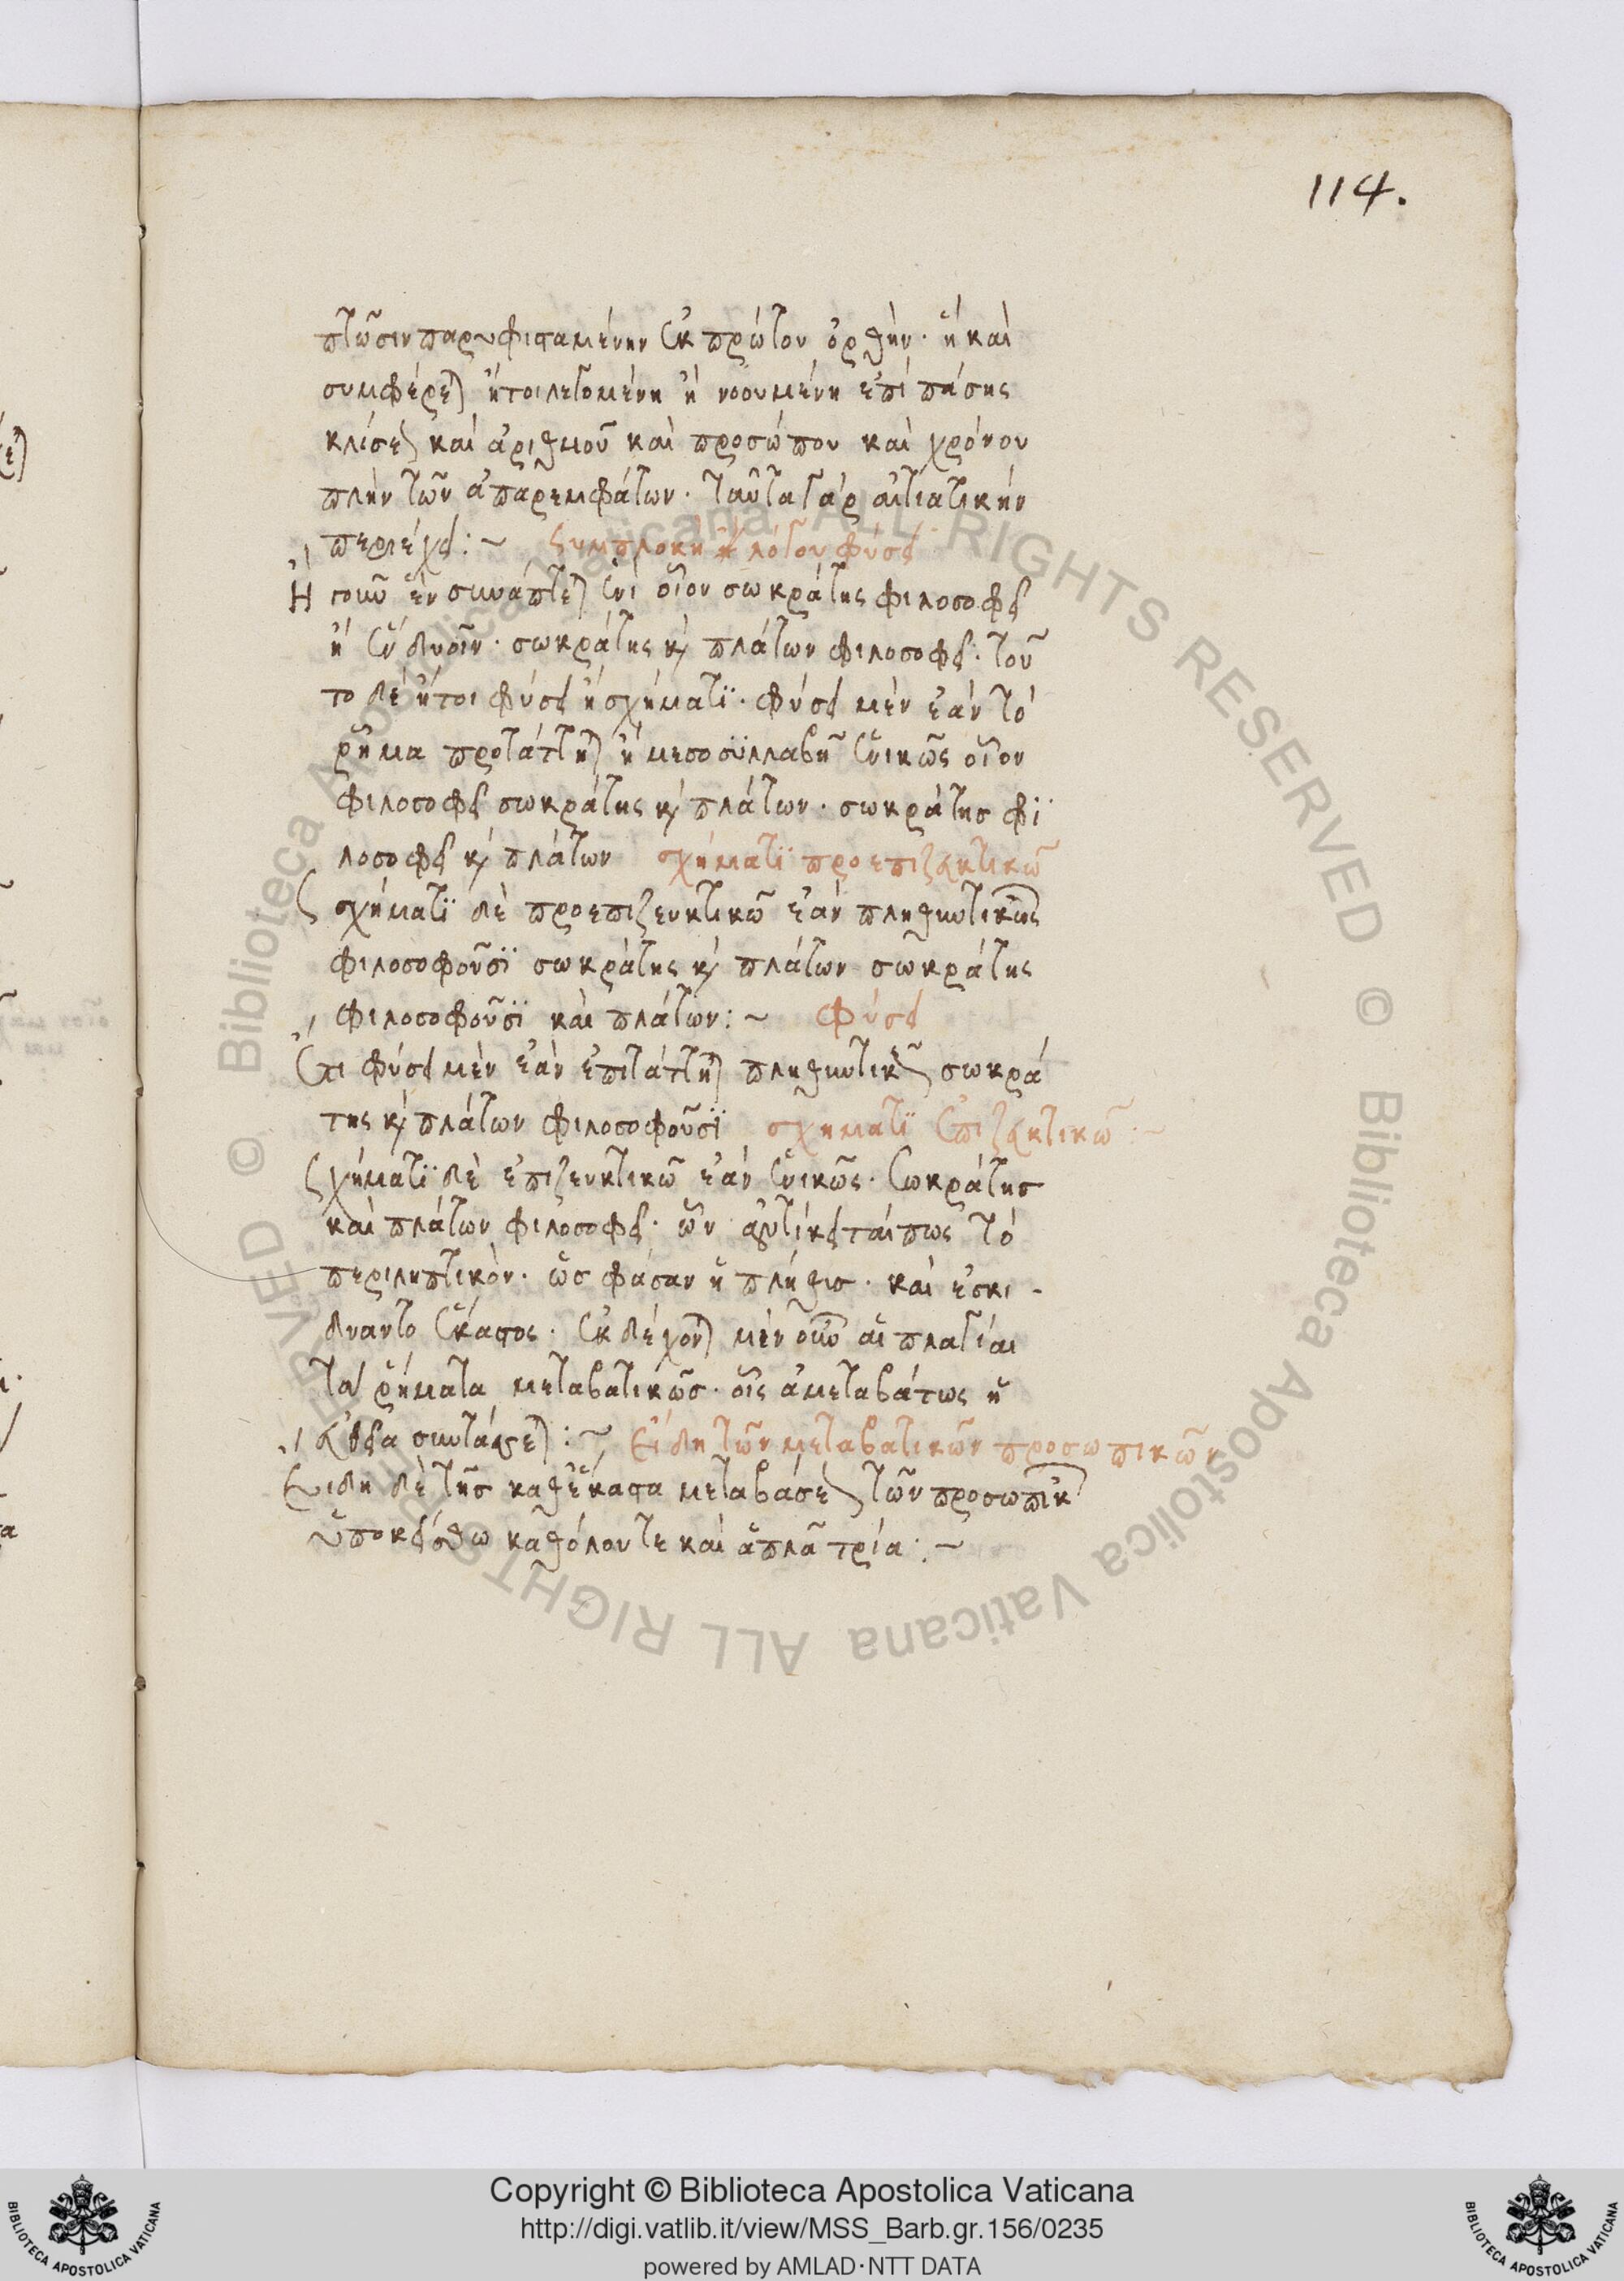 114.
πτῶσιν παρυφισταμένην ἐκ πρώτου ὀρθήν· ἥ καὶ
συμφέρεται ἤτοι λεγομένη ἢ νοουμένη ἐπὶ πάσης
κλίσεως καὶ ἀριθμοῦ καὶ προσώπου καὶ χρόνου
πλὴν τῶν ἀπαρεμφάτων· ταῦτα γὰρ αἰτιατικὴν
περιέχει:~ Συμπλοκὴ λόγου φύσει
Ἡ γοῦν ἓν συνάπτεται ἑνὶ οἷον σωκράτης φιλοσοφεῖ
ἢ ἓν δυοῖν· σωκράτης καὶ πλάτων φιλοσοφεῖ· τοῦ
το δὲ ἤτοι φύσει ἢ σχήματϊ· φύσει μὲν ἐὰν τὸ
ῥῆμα προτάττηται ἢ μεσοσϋλλαβῆ ἑνικῶς οἷον
φιλοσοφεῖ σωκράτης καὶ πλάτων· σωκράτησ φϊ
λοσοφεῖ καὶ πλάτων σχήματϊ προεπιζευκτικῶ
Σχήματϊ δὲ προεπιζευκτικῶ ἐὰν πληθυντικῶς
φιλοσοφοῦσϊ σωκράτης καὶ πλάτων σωκράτης
φιλοσοφοῦσϊ καὶ πλάτων:~ Φύσει
Ἔτι φύσει μὲν ἐὰν ἐπιτάττηται πληθυντικῶς σωκρά
της καὶ πλάτων φιλοσοφοῦσϊ σχηματϊ ἐπιζευκτικῶ:~
Σχήματϊ δὲ ἐπιζευκτικῶ ἐὰν ἑνικῶς· Σωκράτησ
καὶ πλάτων φιλοσοφεῖ· ὧν ἀντίκειταί πως τὸ
περιληπτικὸν· ὣσ φάσαν ἡ πληθισ· καὶ ἐσκι-
δναντο ἕκαστος· ἐκδέχονται μὲν οὖν αἱ πλαγίαι
τὰ ῥήματα μεταβατικῶσ· οἷς ἀμεταβάτως ἡ
εὐθεῖα συντάσσεται:~ Εἴδη τῶν μεταβατικῶν προσωπικῶν
Εἴδη δὲ τῆσ καθέκαστα μεταβάσεως τῶν προσωπικῶν
ὑποκείσθω καθόλου τε καὶ ἁπλᾶ τρία:~
Copyright © Biblioteca Apostolica Vaticana
http://digi.vatlib.it/view/MSS_Barb.gr.156/0235
powered by AMLAD·NTT DATA